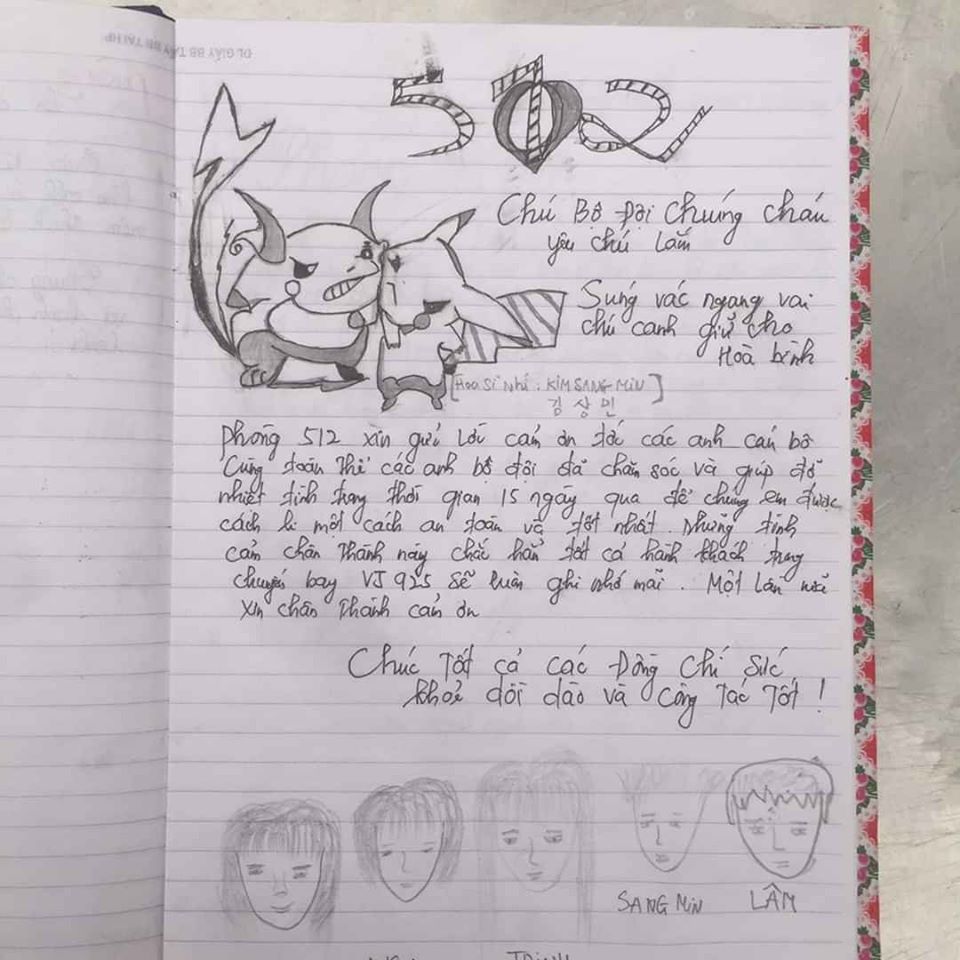 512
Chú Bộ Đội Chúng cháu
yêu chú lắm
Súng vác ngang vai
chú canh giữ cho
Hoà bình
[Hoạ Sĩ Nhí : KIM SANG MIN]
김 상 민
Phòng 512 xin gửi lời cảm ơn tới các anh cán bộ
Cùng toàn thể các anh bộ đội đã chăm sóc và giúp đỡ
nhiệt tình trong thời gian 15 ngày qua để chúng em được
cách li một cách an toàn và tốt nhất. Những tình
cảm chân thành này chắc hẳn tất cả hành khách trong
chuyến bay VJ 925 sẽ luôn ghi nhớ mãi. Một lần nữa
xin chân thành cảm ơn
Chúc Tất cả các Đồng Chí Sức
khoẻ dồi dào và Công Tác Tốt !
SANG MIN LÂM